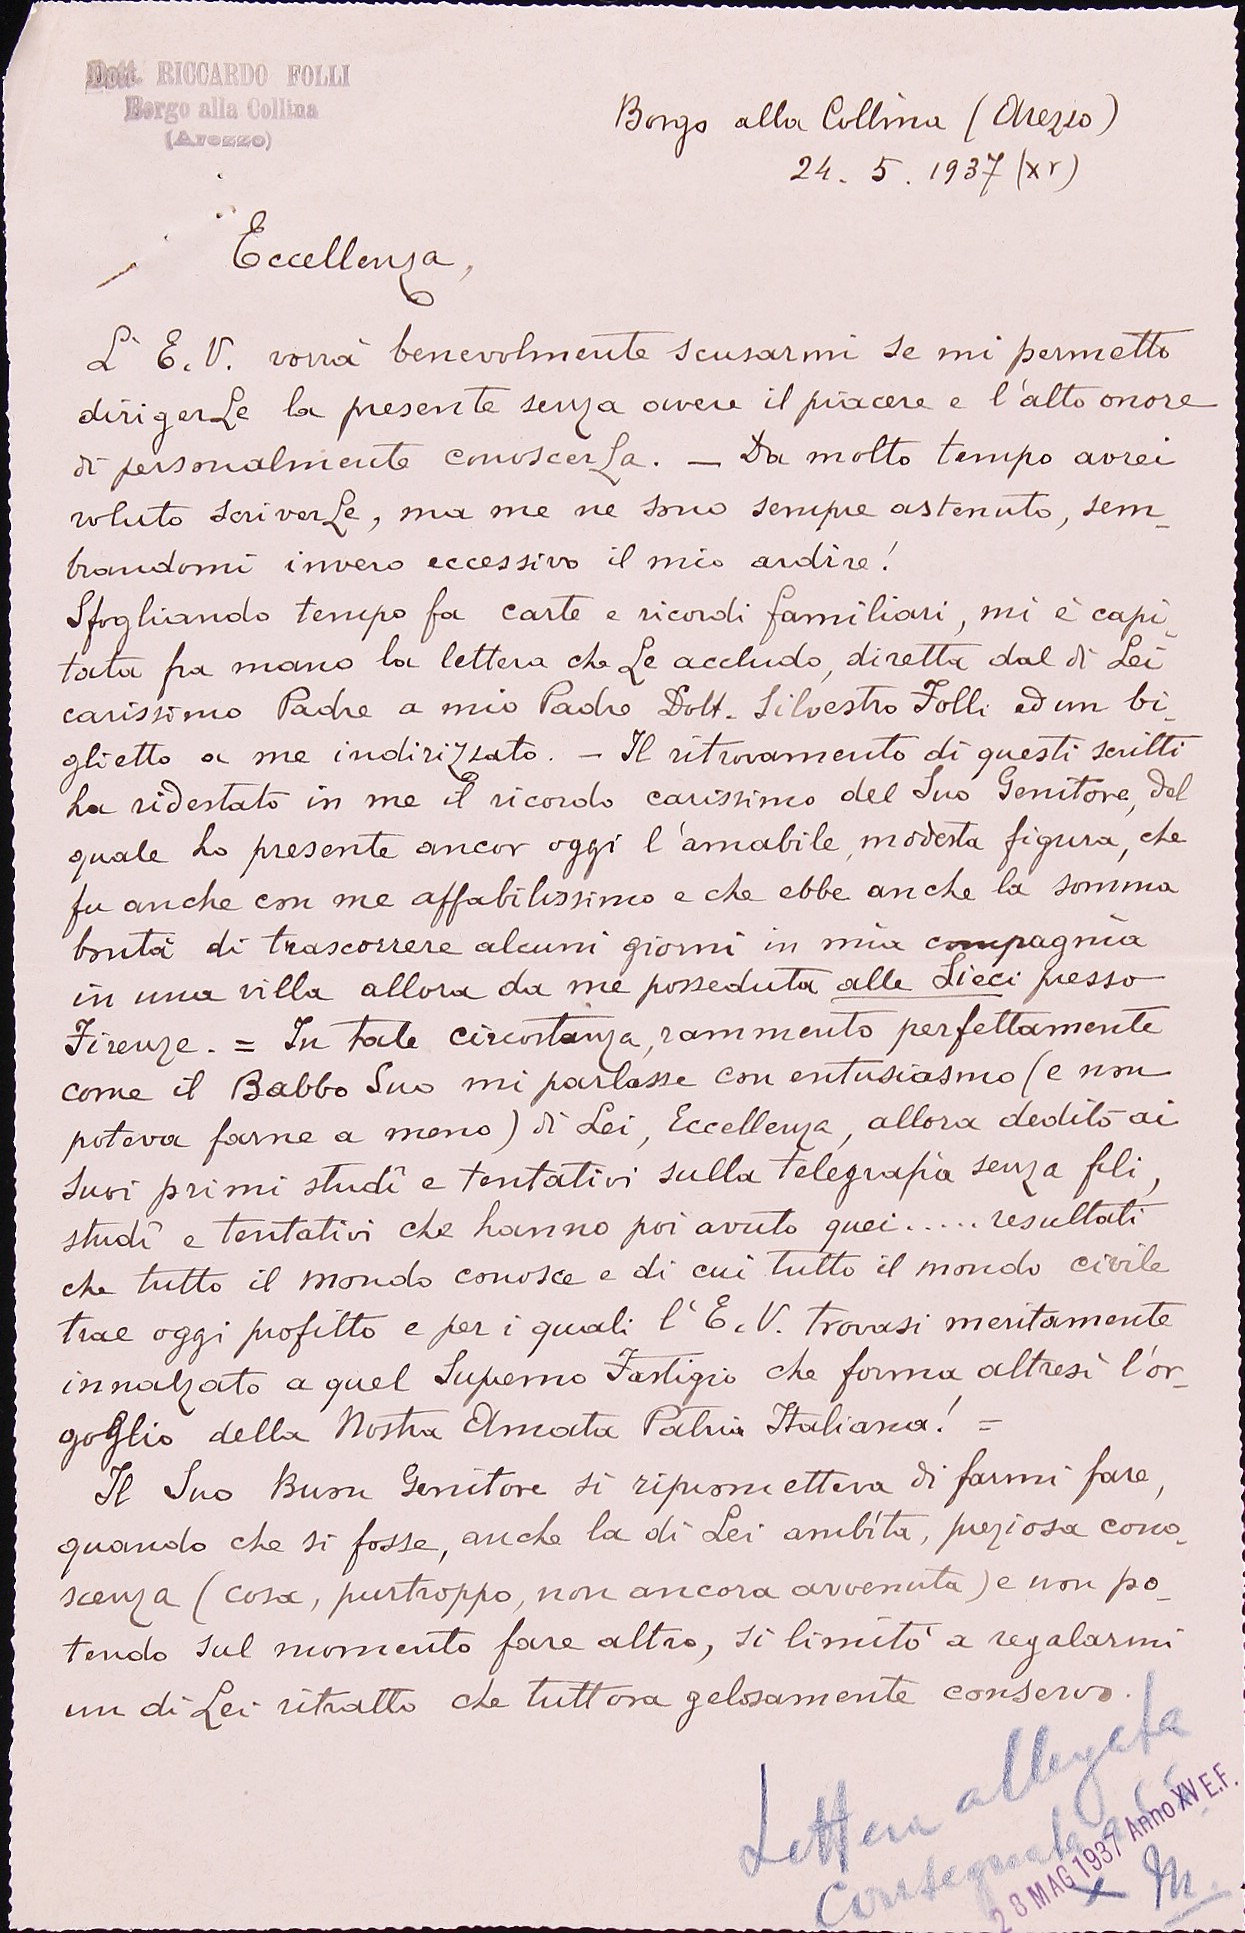 Dott. RICCARDO FOLLI
Borgo alla Collina
(Arezzo)
Borgo alla Collina (Arezzo)
24. 5. 1937 (XV)
Eccellenza,
L' E. V. vorrà benevolmente scusarmi se mi permetto
dirigerLe la presente senza avere il piacere e l'alto onore
di personalmente conoscerLa. — Da molto tempo avrei
voluto scriverLe, ma me ne sono sempre astenuto, sem-
brandomi invero eccessivo il mio ardire!
Sfogliando tempo fa carte e ricordi familiari, mi è capi-
tata fra mano la lettera che Le accludo, diretta dal di Lei
carissimo Padre a mio Padre Dott. Silvestro Folli ed un bi-
glietto a me indirizzato. — Il ritrovamento di questi scritti
ha ridestato in me il ricordo carissimo del Suo Genitore, del
quale ho presente ancor oggi l'amabile, modesta figura, che
fu anche con me affabilissimo e che ebbe anche la somma
bontà di trascorrere alcuni giorni in mia compagnia
in una villa allora da me posseduta alle Sieci presso
Firenze. = In tale circostanza, rammento perfettamente
come il Babbo Suo mi parlasse con entusiasmo (e non
poteva farne a meno) di Lei, Eccellenza, allora dedito ai
Suoi primi studî e tentativi sulla telegrafia senza fili,
studî e tentativi che hanno poi avuto quei..... resultati
che tutto il mondo conosce e di cui tutto il mondo civile
trae oggi profitto e per i quali l' E. V. trovasi meritamente
innalzato a quel Supremo Fastigio che forma altresì l'or-
goglio della Nostra Amata Patria Italiana! =
Il Suo Buon Genitore si riprometteva di farmi fare,
quando che si fosse, anche la di Lei ambíta, preziosa cono-
scenza (cosa, purtroppo, non ancora avvenuta) e non po-
tendo sul momento fare altro, si limitò a regalarmi
un di Lei ritratto che tuttora gelosamente conservo.
Lettera allegata
consegnata a
28 MAG 1937 Anno XV E.F.
M.